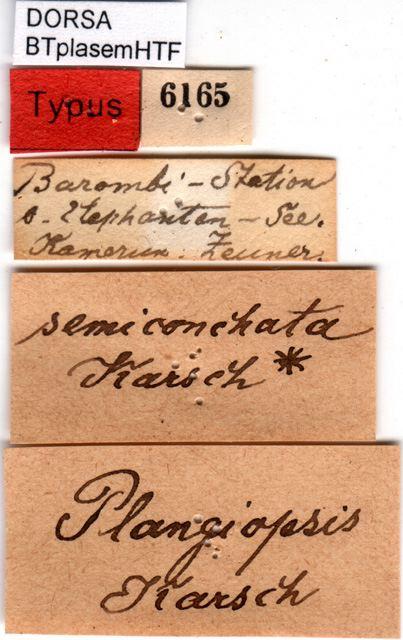 DORSA
BTplasemHTF
Typus
6165
Barombi - Station
s. Elephanten - See.
Kamerun. Zeuner.
semiconchata
Karsch *
Plangiopsis
Karsch